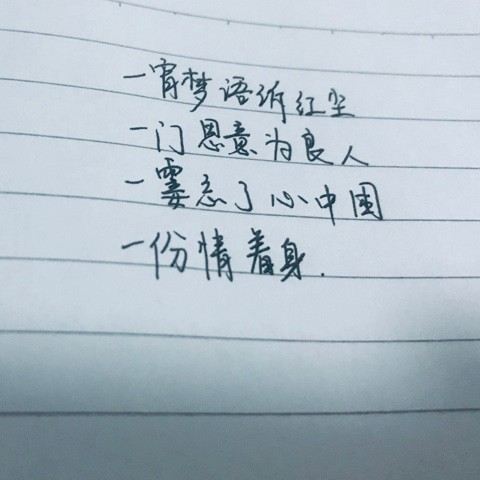 一宵梦语诉红尘
一门恩意为良人
一霎忘了心中国
一份情着身.